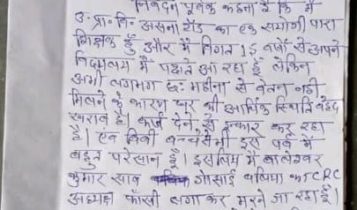 निवेदन पूर्वक कहना है कि मैं
उ. प्रा. वि. असना रोड का एक सहयोगी पारा
शिक्षक हूँ और मैं विगत 15 वर्षो से अपने
विद्यालय में पढ़ाते आ रहा हूँ लेकिन
अभी लगभग छः महीना से वेतन नही
मिलने के कारण घर की आर्थिक स्थिति बेहद
खराब है। कर्ज देने से इन्कार कर रहा
है। एवं बच्चे सभी इस पर्व में
बहुत परेसान हैं। इसलिए मैं
कुमार साव गोसाई बलिया का CRC
अध्यक्ष फाँसी लगा कर मरने जा रहा हूँ।